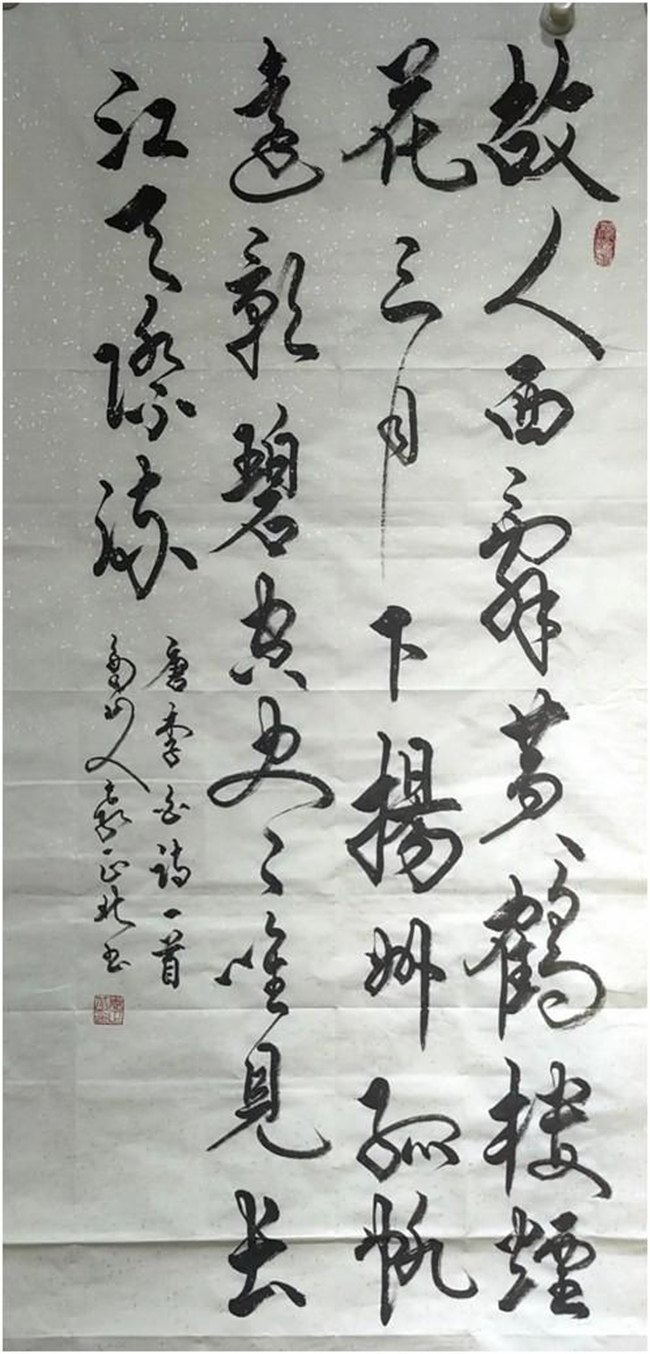 故人西辭黃鶴樓煙
花三月下揚州孤帆
遠影碧空尽唯見長
江天際流
唐李白詩一首
山人袁正书